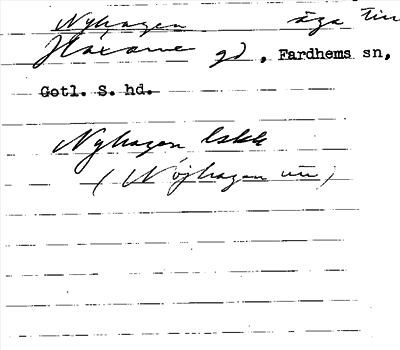 Nyhagen äga till
Haxarve gd, Fardhems sn,
Gotl. S. hd.
Nyhagen lskk
( Nöjhagen un )